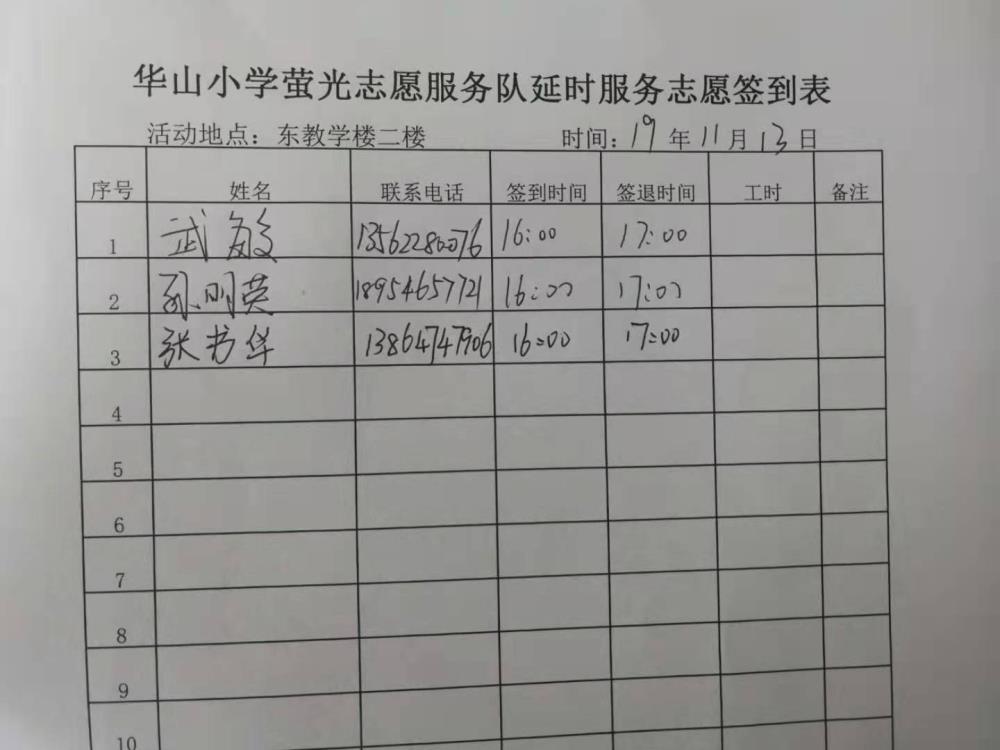 华山小学萤光志愿服务队延时服务志愿签到表
活动地点：东教学楼二楼 时间：19年11月13日
序号 姓名 联系电话 签到时间 签退时间 工时 备注
1 武敏 13562280076 16:00 17:00
2 孙明英 18954657721 16:00 17:00
3 张书华 13864747906 16:00 17:00
4
5
6
7
8
9
10